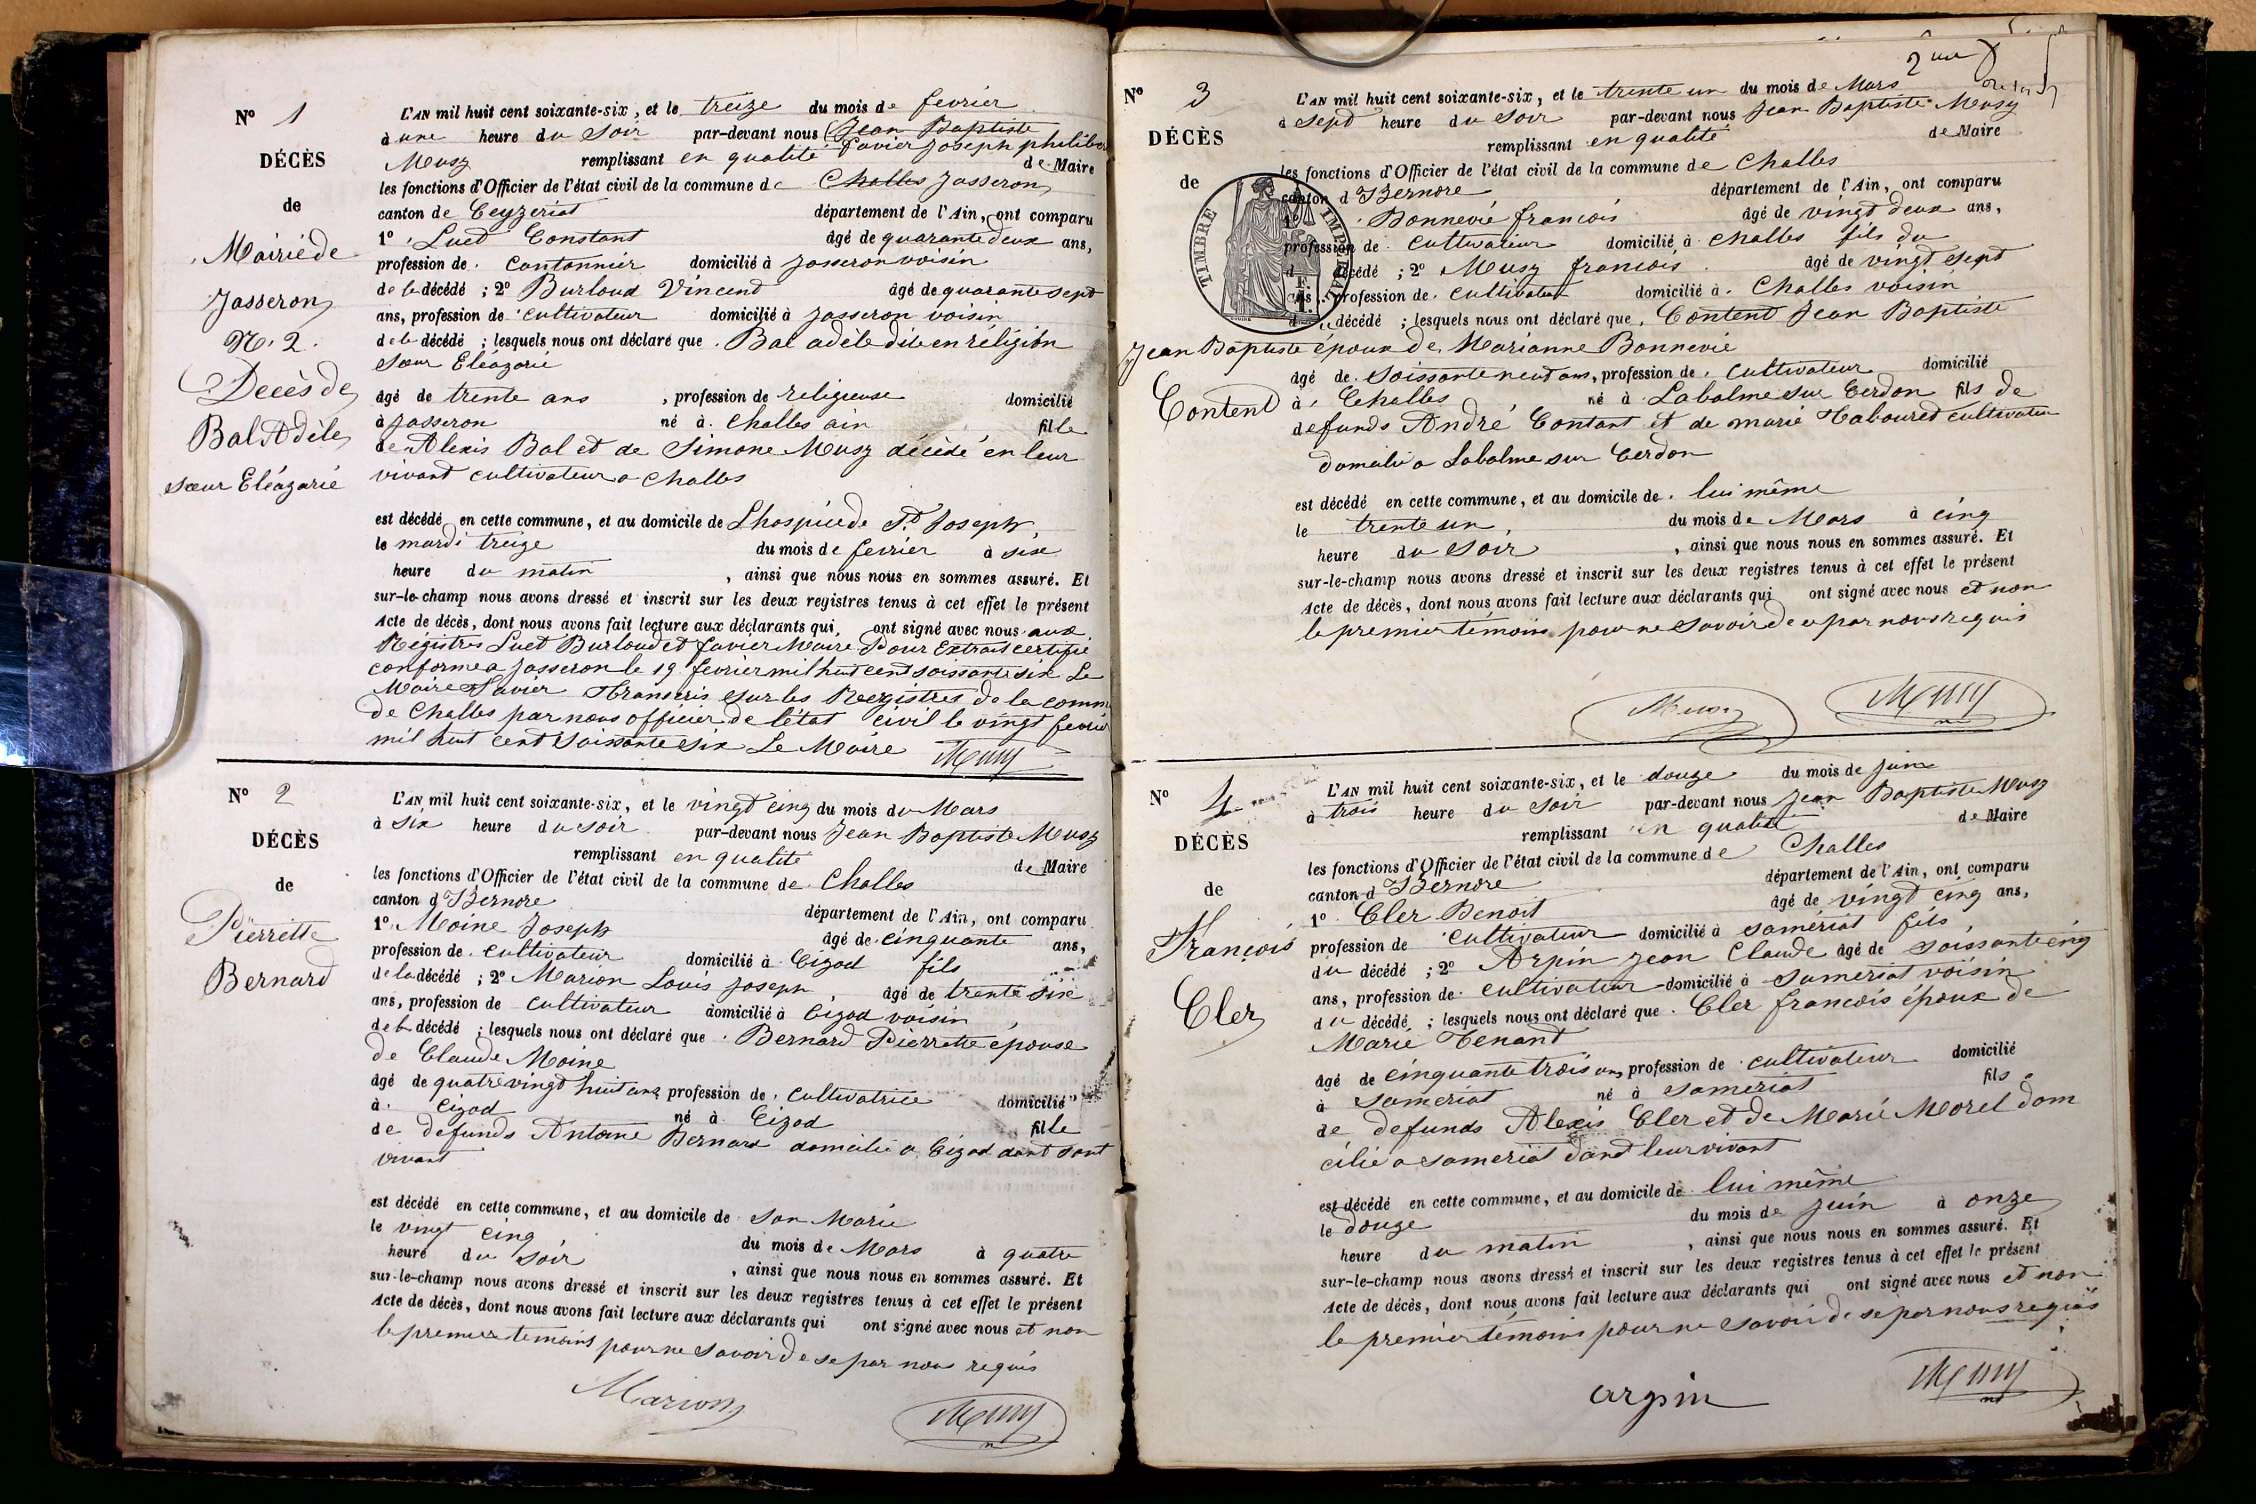 N° 1
DÉCÈS
de
Mairie de
Jasseron
N. 2.
Décès de
Bal Adèle
sœur Eléazarie
L'AN mil huit cent soixante-six, et le treize du mois de fevrier
à une heure du Soir par-devant nous Jean Baptiste
Favier Joseph philiber
Musy remplissant en qualité de Maire
les fonctions d'Officier de l'état civil de la commune de Challes Jasseron
canton de Ceyzeriat département de l'Ain, ont comparu
1° Luet Constant âgé de quarante deux ans,
profession de Cantonnier domicilié à Jasseron voisin
de la décédé ; 2° Burloud Vincend âgé de quarante sept
ans, profession de cultivateur domicilié à Jasseron voisin
de la décédé ; lesquels nous ont déclaré que Bal adèle dite en réligion
Sœur Eléazarie
âgé de trente ans , profession de religieuse domicilié
à Jasseron né à Challes ain fille
de Alexis Bal et de Simone Musy décédé en leur
vivant cultivateur a Challes
est décédé en cette commune, et au domicile de Lhospice de St Joseph
le mardi treize du mois de fevrier à six
heure du matin , ainsi que nous nous en sommes assuré. Et
sur-le-champ nous avons dressé et inscrit sur les deux registres tenus à cet effet le présent
Acte de décès, dont nous avons fait lecture aux déclarants qui ont signé avec nous aux
Régistres Luet Burloud et Favier Maire Pour Extrait certifié
conforme a Jasseron le 19 fevrier mil huit cent soissante six Le
Maire Favier Transcris sur les Registres de la comm
de Challes par nous officier de l'état civil le vingt fevrier
mil huit cent soissante six Le Maire Musy
N° 2
DÉCÈS
de
Pierrette
Bernard
L'AN mil huit cent soixante-six, et le vingt cinq du mois du Mars
à six heure du soir par-devant nous Jean Baptiste Musy
remplissant en qualité de Maire
les fonctions d'Officier de l'état civil de la commune de Challes
canton d'Izernore département de l'Ain, ont comparu
1° Moine Joseph âgé de cinquante ans,
profession de cultivateur domicilié à Cizod fils
de la décédé ; 2° Marion Louis Joseph âgé de trente six
ans, profession de cultivateur domicilié à Cizod voisin
de la décédé ; lesquels nous ont déclaré que Bernard Pierrette épouse
de Claude Moine
âgé de quatrevingt huit ans profession de cultivatrice domicilié
à Cizod né à Cizod fille
de defunds Antoine Bernard domicilié a Cizod dant sont
vivant
est décédé en cette commune, et au domicile de son Marie
le vingt cinq du mois de Mars à quatre
heure du soir , ainsi que nous nous en sommes assuré. Et
sur-le-champ nous avons dressé et inscrit sur les deux registres tenus à cet effet le présent
Acte de décès, dont nous avons fait lecture aux déclarants qui ont signé avec nous et non
le premier temoins pour ne savoir de se par nous requis
Marion Musy
2
N° 3
DÉCÈS
de
TIMBRE IMPERIAL
1 F.
Jean Baptiste
Content
L'AN mil huit cent soixante-six, et le trente un du mois de Mars
à sept heure du soir par-devant nous Jean Baptiste Musy
remplissant en qualité de Maire
les fonctions d'Officier de l'état civil de la commune de Challes
canton d'Izernore département de l'Ain, ont comparu
1° Bonnevie francois âgé de vingt deux ans,
profession de cultivateur domicilié à Challes fils du
décédé ; 2° Musy francois âgé de vingt sept
ans, profession de cultivateur domicilié à Challes voisin
du décédé ; lesquels nous ont déclaré que Content Jean Baptiste
époux de Marianne Bonnevie
âgé de soissante neuf ans, profession de cultivateur domicilié
à Challes né à Labalme sur Cerdon fils de
defunds André Contant et de marie Tabouret cultivateur
domicilié a Labalme sur Cerdon
est décédé en cette commune, et au domicile de lui même
le trente un du mois de Mars à cinq
heure du soir , ainsi que nous nous en sommes assuré. Et
sur-le-champ nous avons dressé et inscrit sur les deux registres tenus à cet effet le présent
Acte de décès, dont nous avons fait lecture aux déclarants qui ont signé avec nous et non
le premier témoins pour ne savoir de ce par nous requis
Musy Musy
N° 4
DÉCÈS
de
François
Cler
L'AN mil huit cent soixante-six, et le douze du mois de juin
à trois heure du soir par-devant nous Jean Baptiste Musy
remplissant en qualité de Maire
les fonctions d'Officier de l'état civil de la commune de Challes
canton d'Izernore département de l'Ain, ont comparu
1° Cler Benoit âgé de vingt cinq ans,
profession de cultivateur domicilié à samériat fils
du décédé ; 2° Arpin Jean Claude âgé de soissante cinq
ans, profession de cultivateur domicilié à sameriat voisin
du décédé ; lesquels nous ont déclaré que Cler francois époux de
Marie Tenand
âgé de cinquante trois ans profession de cultivateur domicilié
à Sameriat né à sameriat fils
de defunds Alexis Cler et de Marie Morel dom
cilié a sameriat dant leur vivant
est décédé en cette commune, et au domicile de lui même
le douze du mois de juin à onze
heure du matin , ainsi que nous nous en sommes assuré. Et
sur-le-champ nous avons dressé et inscrit sur les deux registres tenus à cet effet le présent
Acte de décès, dont nous avons fait lecture aux déclarants qui ont signé avec nous et non
le premier témoins pour ne savoir de se par nous requis
arpin Musy